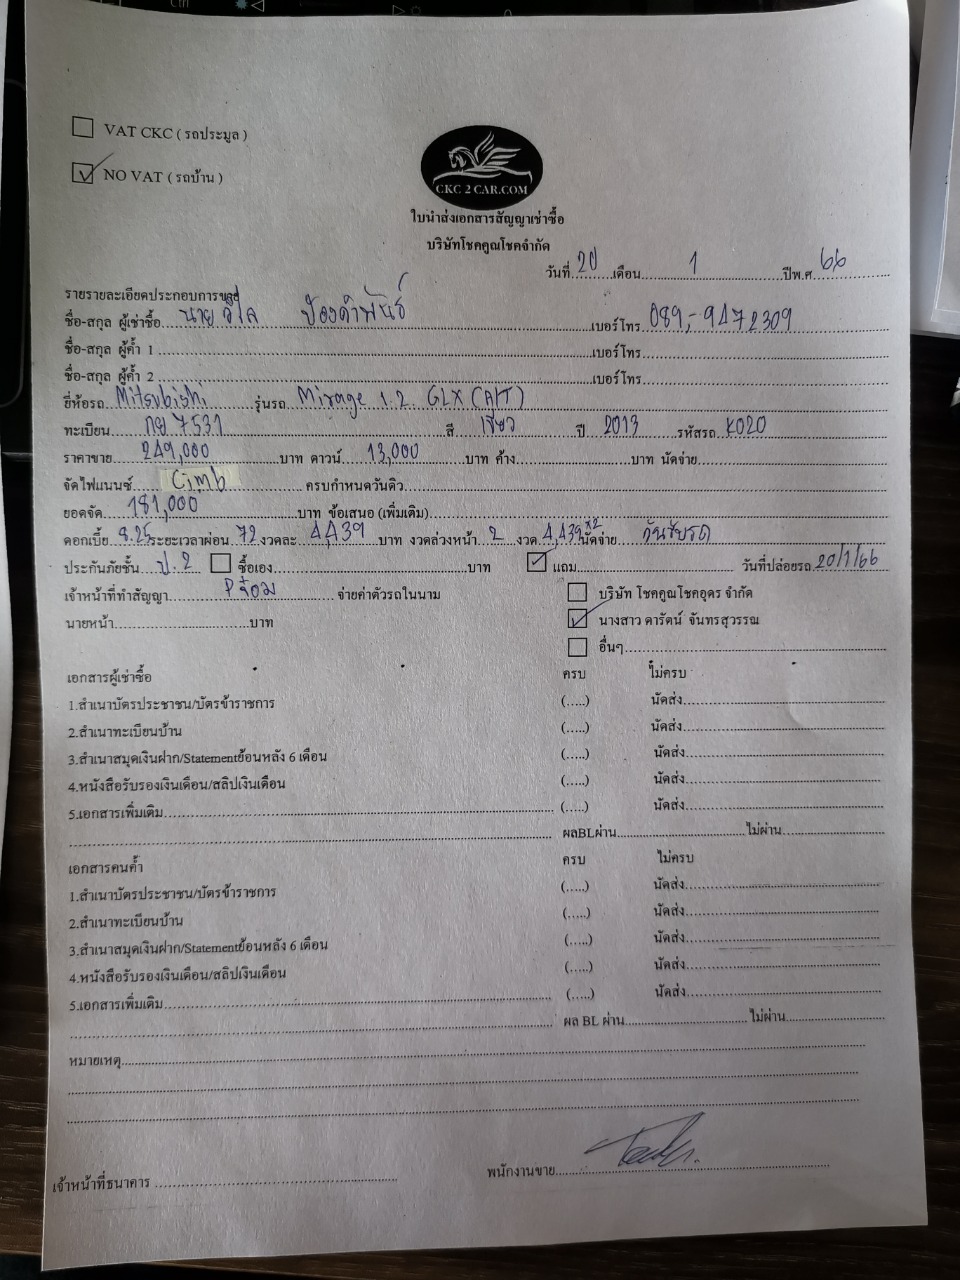 VAT CKC ( รถประมูล )
NO VAT ( รถบ้าน )
CKC 2 CAR.COM
ใบนำส่งเอกสารสัญญาเช่าซื้อ
บริษัทโชคคูณโชคจำกัด
วันที่ 20 เดือน 1 ปีพ.ศ 66
รายรายละเอียดประกอบการขาย
ชื่อ-สกุล ผู้เช่าซื้อ นาย วิไล ป้องคำพันธ์ เบอร์โทร 089,-9472309
ชื่อ-สกุล ผู้ค้ำ 1 เบอร์โทร
ชื่อ-สกุล ผู้ค้ำ 2 เบอร์โทร
ยี่ห้อรถ Mitsubishi รุ่นรถ Mirage 1.2 GLX (A/T)
ทะเบียน กย 7531 สี เขียว ปี 2013 รหัสรถ K020
ราคาขาย 249,000 บาท ดาวน์ 13,000 บาท ค้าง บาท นัดจ่าย
จัดไฟแนนซ์ Cimb ครบกำหนดวันดิว
ยอดจัด 181,000 บาท ข้อเสนอ (เพิ่มเติม)
ดอกเบี้ย 8.25 ระยะเวลาผ่อน 72 งวดละ 4,439 บาท งวดล่วงหน้า 2 งวด 4,439 x2 นัดจ่าย วันรับรถ
ประกันภัยชั้น ป.2 ซื้อเอง บาท แถม วันที่ปล่อยรถ 20/1/66
เจ้าหน้าที่ทำสัญญา Pจ๋อม จ่ายค่าตัวรถในนาม บริษัท โชคคูณโชคอุดร จำกัด
นายหน้า บาท นางสาว ดารัตน์ จันทรสุวรรณ
อื่นๆ
เอกสารผู้เช่าซื้อ ครบ ไม่ครบ
1.สำเนาบัตรประชาชน/บัตรข้าราชการ (.....) นัดส่ง
2.สำเนาทะเบียนบ้าน (.....) นัดส่ง
3.สำเนาสมุดเงินฝาก/Statementย้อนหลัง 6 เดือน (.....) นัดส่ง
4.หนังสือรับรองเงินเดือน/สลิปเงินเดือน (.....) นัดส่ง
5.เอกสารเพิ่มเติม (.....) นัดส่ง
ผลBLผ่าน ไม่ผ่าน
เอกสารคนค้ำ ครบ ไม่ครบ
1.สำเนาบัตรประชาชน/บัตรข้าราชการ (.....) นัดส่ง
2.สำเนาทะเบียนบ้าน (.....) นัดส่ง
3.สำเนาสมุดเงินฝาก/Statementย้อนหลัง 6 เดือน (.....) นัดส่ง
4.หนังสือรับรองเงินเดือน/สลิปเงินเดือน (.....) นัดส่ง
5.เอกสารเพิ่มเติม (.....) นัดส่ง
ผล BL ผ่าน ไม่ผ่าน
หมายเหตุ
เจ้าหน้าที่ธนาคาร พนักงานขาย